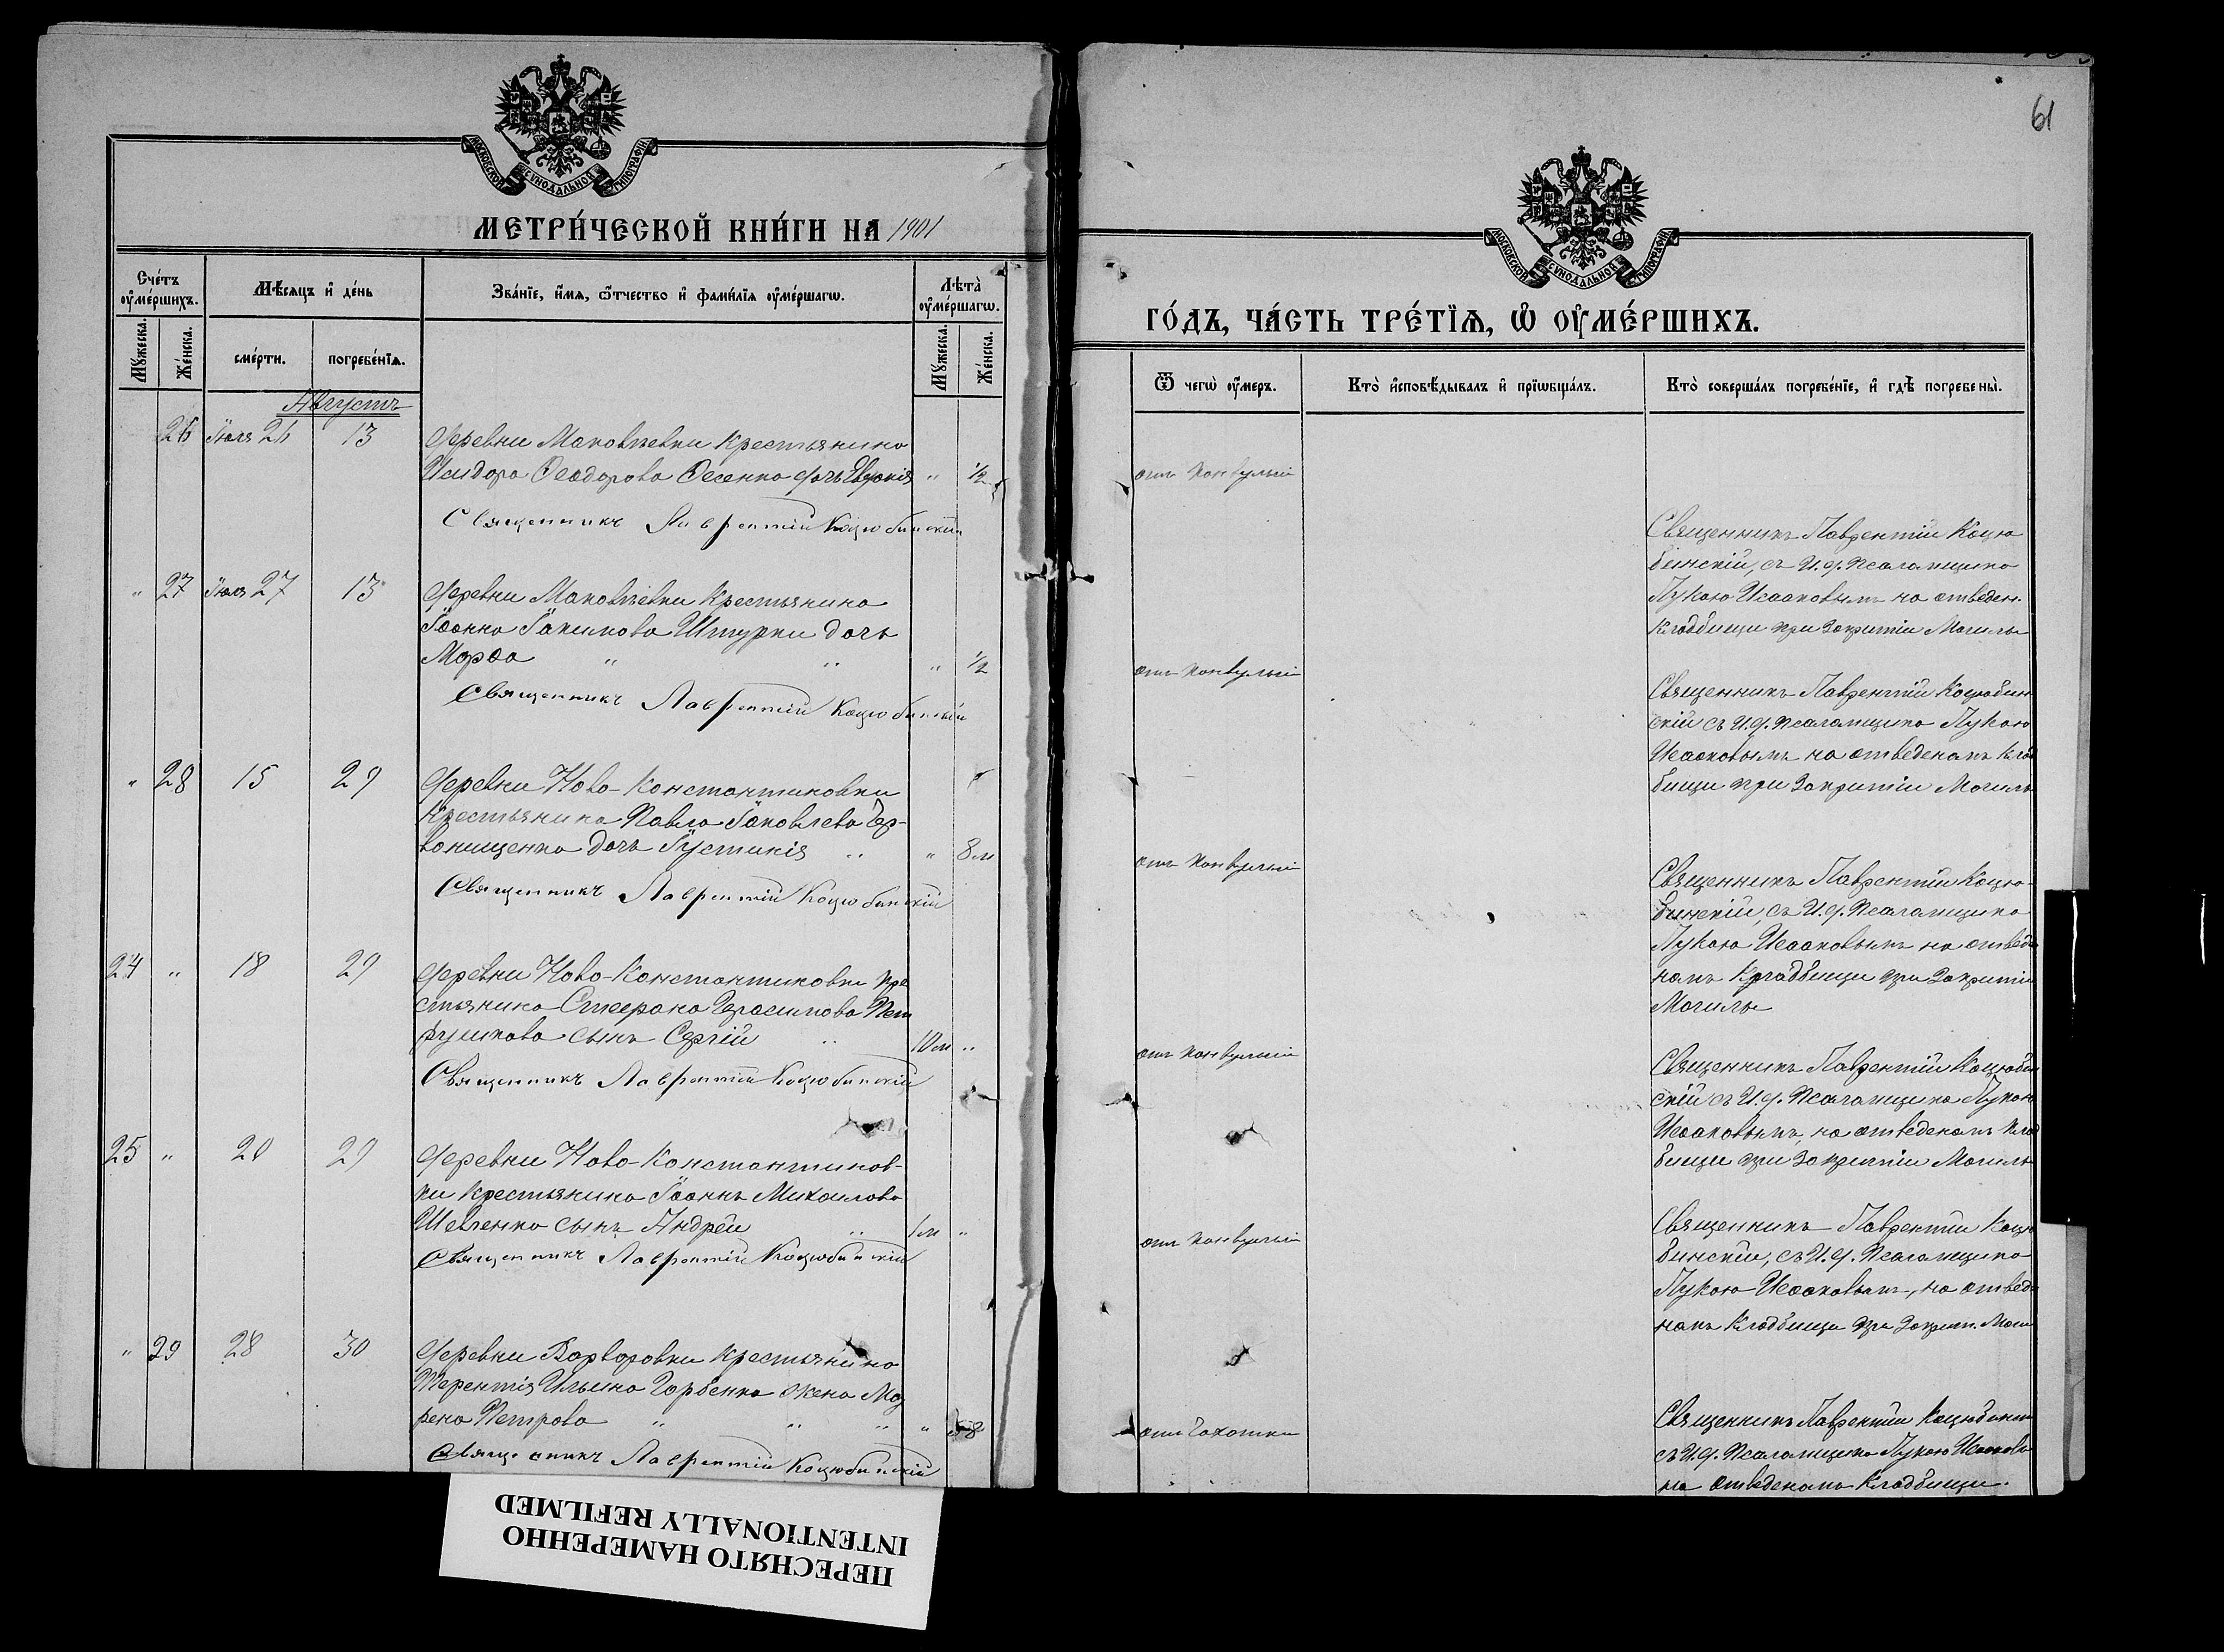 61
МОСКОВСКОЙ СѴНОДАЛЬНОЙ ТИПОГРАФІИ
МЕТРИ́ЧЕСКОЙ КНИ́ГИ НА 1901
Сче́тъ ᲂу҆ме́ршихъ.
Мѣ́сяцъ и҆ де́нь
Зва́нїе, и҆́мѧ, ѻ҆́тчество и҆ фами́лїѧ ᲂу҆ме́ршагѡ.
Лѣ́та̀ ᲂу҆ме́ршагѡ.
Мꙋ́жеска.
Же́нска.
сме́рти.
погребе́нїѧ.
Мꙋ́жеска.
Же́нска.
Августъ
26 Іюля 26 13 Деревни Маковѣевки крестьянина
Исидора Ѳеодорова Ѳесенка дочь Евдокія " 1/2
Священникъ Лаврентій Коцюбинскій
" 27 Іюля 27 13 Деревни Маковѣевки крестьянина
Іоанна Іакимова Штурки дочь
Марѳа " " " 1/2
Священникъ Лаврентій Коцюбинскій
" 28 15 29 Деревни Ново-Константиновки
крестьянина Павла Іаковлева Чер-
вонищенка дочь Іустинія " " 8 м
Священникъ Лаврентій Коцюбинскій
24 " 18 29 Деревни Ново-Константиновки кре
стьянина Стефана Герасимова Пет
рушкова сынъ Сергій " 10 м "
Священникъ Лаврентій Коцюбинскій
25 " 20 29 Деревни Ново-Константинов-
ки крестьянина Іоанна Михаилова
Шевченко сынъ Андрей " 1 м "
Священникъ Лаврентій Коцюбинскій
" 29 28 30 Деревни Варваровки крестьянина
Терентія Ильина Горбенка жена
Петрова " " " "
Священникъ Лаврентій Коцюбинскій
МОСКОВСКОЙ СѴНОДАЛЬНОЙ ТИПОГРАФІИ
ГО́ДЪ, ЧА́СТЬ ТРЕ́ТЇѦ, Ѡ҆ ОУ҆МЕ́РШИХЪ.
Ѿ чегѡ̀ ᲂу҆́меръ.
Кто̀ и҆сповѣ́дывалъ и҆ прїѡбща́лъ.
Кто̀ соверша́лъ погребе́нїе, и҆ гдѣ̀ погребены̀.
отъ конвульсій
Священникъ Лаврентій Коцю
бинскій, съ И. д. псаломщика
Лукою Исааковымъ на отведен.
кладбищи при закрытіи могилы
отъ конвульсій
Священникъ Лаврентій Коцюбин
скій съ И. д. псаломщика Лукою
Исааковымъ на отведеномъ клад
бищи при закрытіи могилы
отъ конвульсій
Священникъ Лаврентій Коцю-
бинскій, съ И. д. псаломщика
Лукою Исааковымъ на отведе
номъ кладбищи при закрытіи
могилы
отъ конвульсій
Священникъ Лаврентій Коцюбин
скій съ И. д. псаломщика Лукою
Исааковымъ, на отведеномъ клад
бищи при закрытіи могилы
отъ конвульсій
Священникъ Лаврентій Коцю
бинскій, съ И. д. псаломщика
Лукою Исааковымъ, на отведе
номъ кладбищи при закрыт. моги
отъ чахотки
Священникъ Лаврентій Коцюбинск
съ И. д. псаломщика Лукою Исааков
на отведеномъ кладбищи.
ПЕРЕСНЯТО НАМЕРЕННО
INTENTIONALLY REFILMED